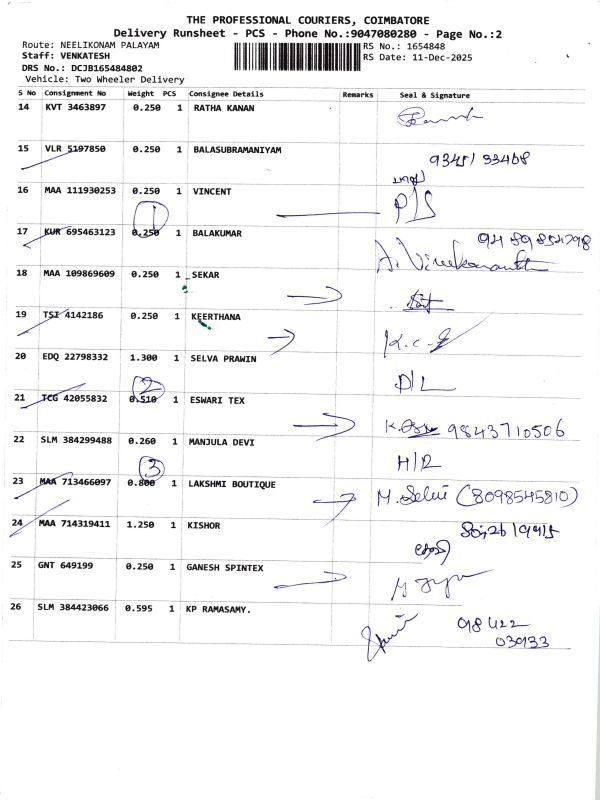 THE PROFESSIONAL COURIERS, COIMBATORE
Delivery Runsheet - PCS - Phone No.:9047080280 - Page No.:2
Route: NEELIKONAM PALAYAM
RS No.: 1654848
Staff: VENKATESH
RS Date: 11-Dec-2025
DRS No.: DCJB165484802
Vehicle: Two Wheeler Delivery
S No Consignment No Weight PCS Consignee Details Remarks Seal & Signature
14 KVT 3463897 0.250 1 RATHA KANAN
15 VLR 5197850 0.250 1 BALASUBRAMANIYAM
16 MAA 111930253 0.250 1 VINCENT
1
17 KUR 695463123 0.250 1 BALAKUMAR
18 MAA 109869609 0.250 1 SEKAR
19 TSI 4142186 0.250 1 KEERTHANA
20 EDQ 22798332 1.300 1 SELVA PRAWIN
D/L
2
21 TCG 42055832 0.510 1 ESWARI TEX
9843710506
22 SLM 384299488 0.260 1 MANJULA DEVI
H/R
3
23 MAA 713466097 0.800 1 LAKSHMI BOUTIQUE
M. Selvi (8098545810)
24 MAA 714319411 1.250 1 KISHOR
25 GNT 649199 0.250 1 GANESH SPINTEX
26 SLM 384423066 0.595 1 KP RAMASAMY.
98422
03933